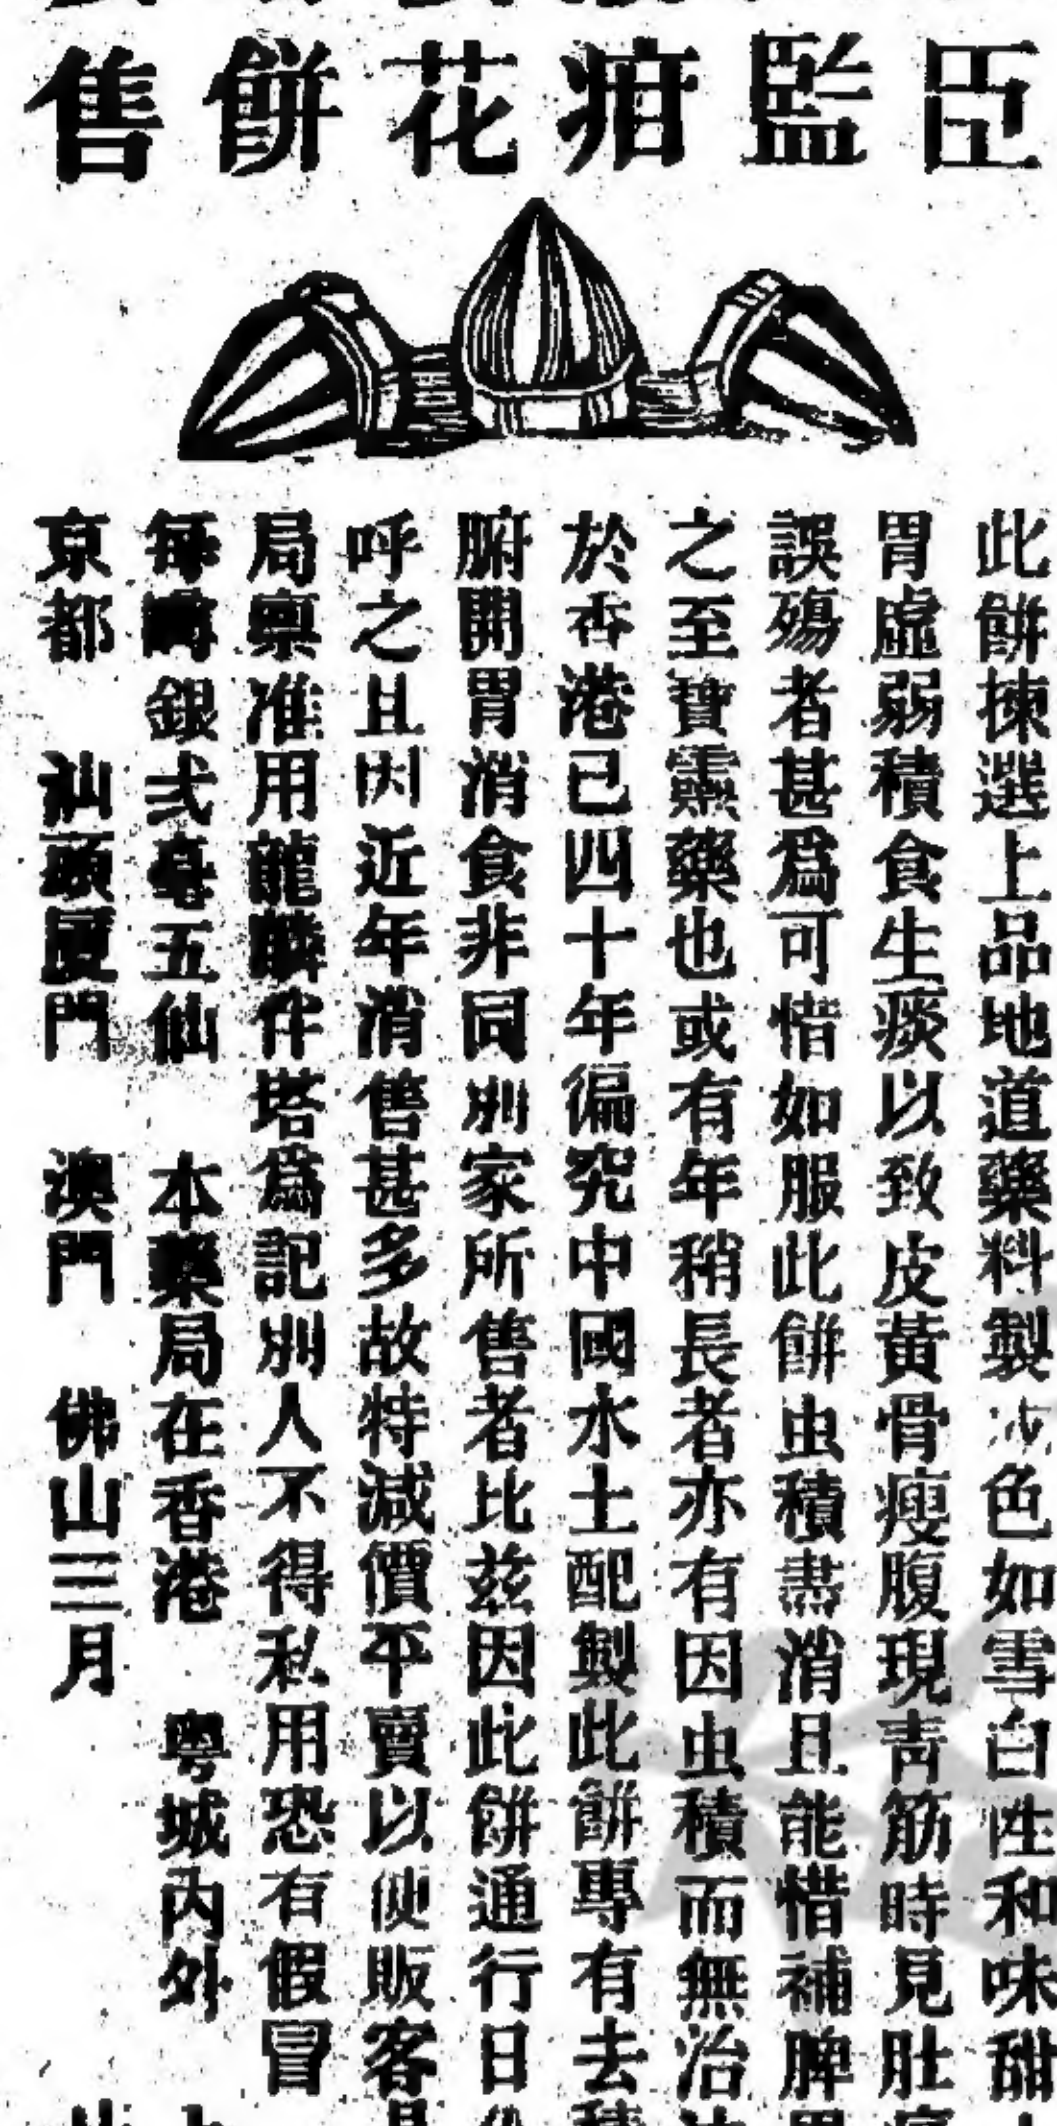 臣監疳花餅售
此餅揀選上品地道藥料製成色如雪白性和味甜
胃虛弱積食生痰以致皮黃骨瘦腹現青筋時見肚
誤殤者甚爲可惜如服此餅虫積盡消且能惜補脾
之至寶靈藥也或有年稍長者亦有因虫積而無治
於香港已四十年徧究中國水土配製此餅專有去
腑開胃消食非同別家所售者比茲因此餅通行日
呼之且因近年消售甚多故特減價平賣以便販客
局稟准用龍麟伴塔爲記別人不得私用恐有假冒
每 銀弍毫五仙 本藥局在香港 粵城內外
京都 汕頭厦門 澳門 佛山三月